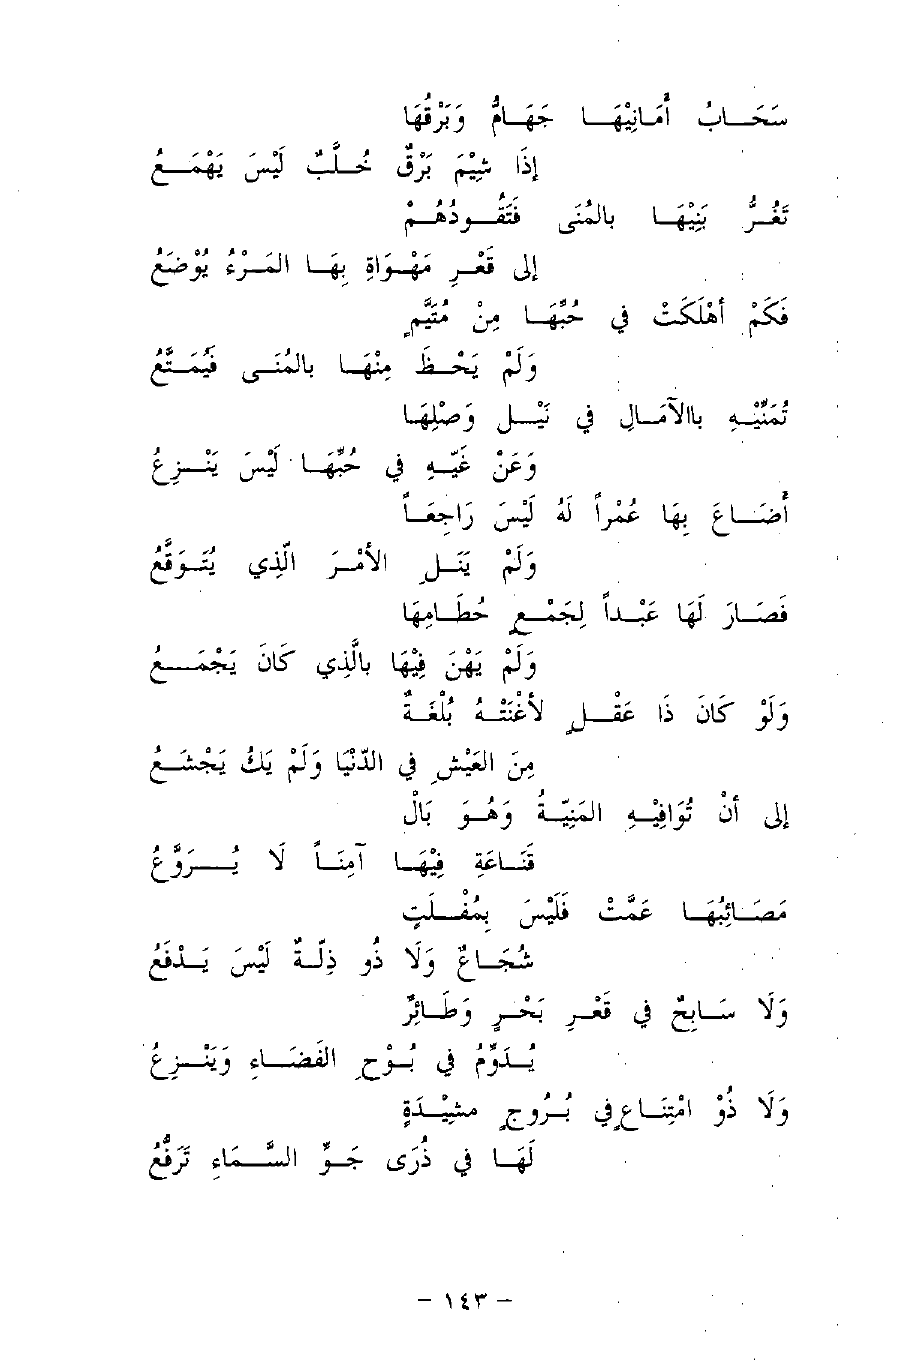 سَحَابُ أَمَانِيْهَا جَهَامٌ وَبَرْقُهَا
إِذَا شِيْمَ بَرْقٌ خُلَّبٌ لَيْسَ يَهْمَعُ
تَغُرُّ بَنِيْهَا بالمُنَى فَتَقُودُهُمْ
إلى قَعْرِ مَهْوَاةٍ بِهَا المَرْءُ يُوْضَعُ
فَكَمْ أهْلَكَتْ في حُبِّهَا مِنْ مُتَيَّمٍ
وَلَمْ يَحْظَ مِنْهَا بالمُنَى فَيُمَتَّعُ
تُمَنِّيْهِ باالآمَالِ في نَيْلِ وَصْلِهَا
وَعَنْ غَيِّهِ في حُبِّهَا لَيْسَ يَنْزِعُ
أضَاعَ بِهَا عُمْراً لَهُ لَيْسَ رَاجِعَاً
وَلَمْ يَنَلِ الأمْرَ الَّذِي يُتَوَقَّعُ
فَصَارَ لَهَا عَبْداً لِجَمْعِ حُطَامِهَا
وَلَمْ يَهْنَ فِيْهَا بالَّذِي كَانَ يَجْمَعُ
وَلَوْ كَانَ ذَا عَقْلٍ لأغْنَتْهُ بُلْغَةٌ
مِنَ العَيْشِ في الدّنْيَا وَلَمْ يَكُ يَجْشَعُ
إلى أنْ تُوَافِيْهِ المَنِيّةُ وَهُوَ بَالْ
قَنَاعَةِ فِيْهَا آمِنَاً لَا يُرَوَّعُ
مَصَائِبُهَا عَمَّتْ فَلَيْسَ بِمُفْلَتٍ
شُجَاعٌ وَلَا ذُو ذِلّةٌ لَيْسَ يَدْفَعُ
وَلَا سَابِحٌ في قَعْرِ بَحْرٍ وَطَائِرٌ
يُدَوِّمُ في بُوْحِ الفَضَاءِ وَيَنْزِعُ
وَلَا ذُوْ امْتِنَاعٍ في بُرُوجٍ مشِيْدَةٍ
لَهَا في ذُرَى جَوِّ السَّمَاءِ تَرَفُّعُ
– ١٤٣ –